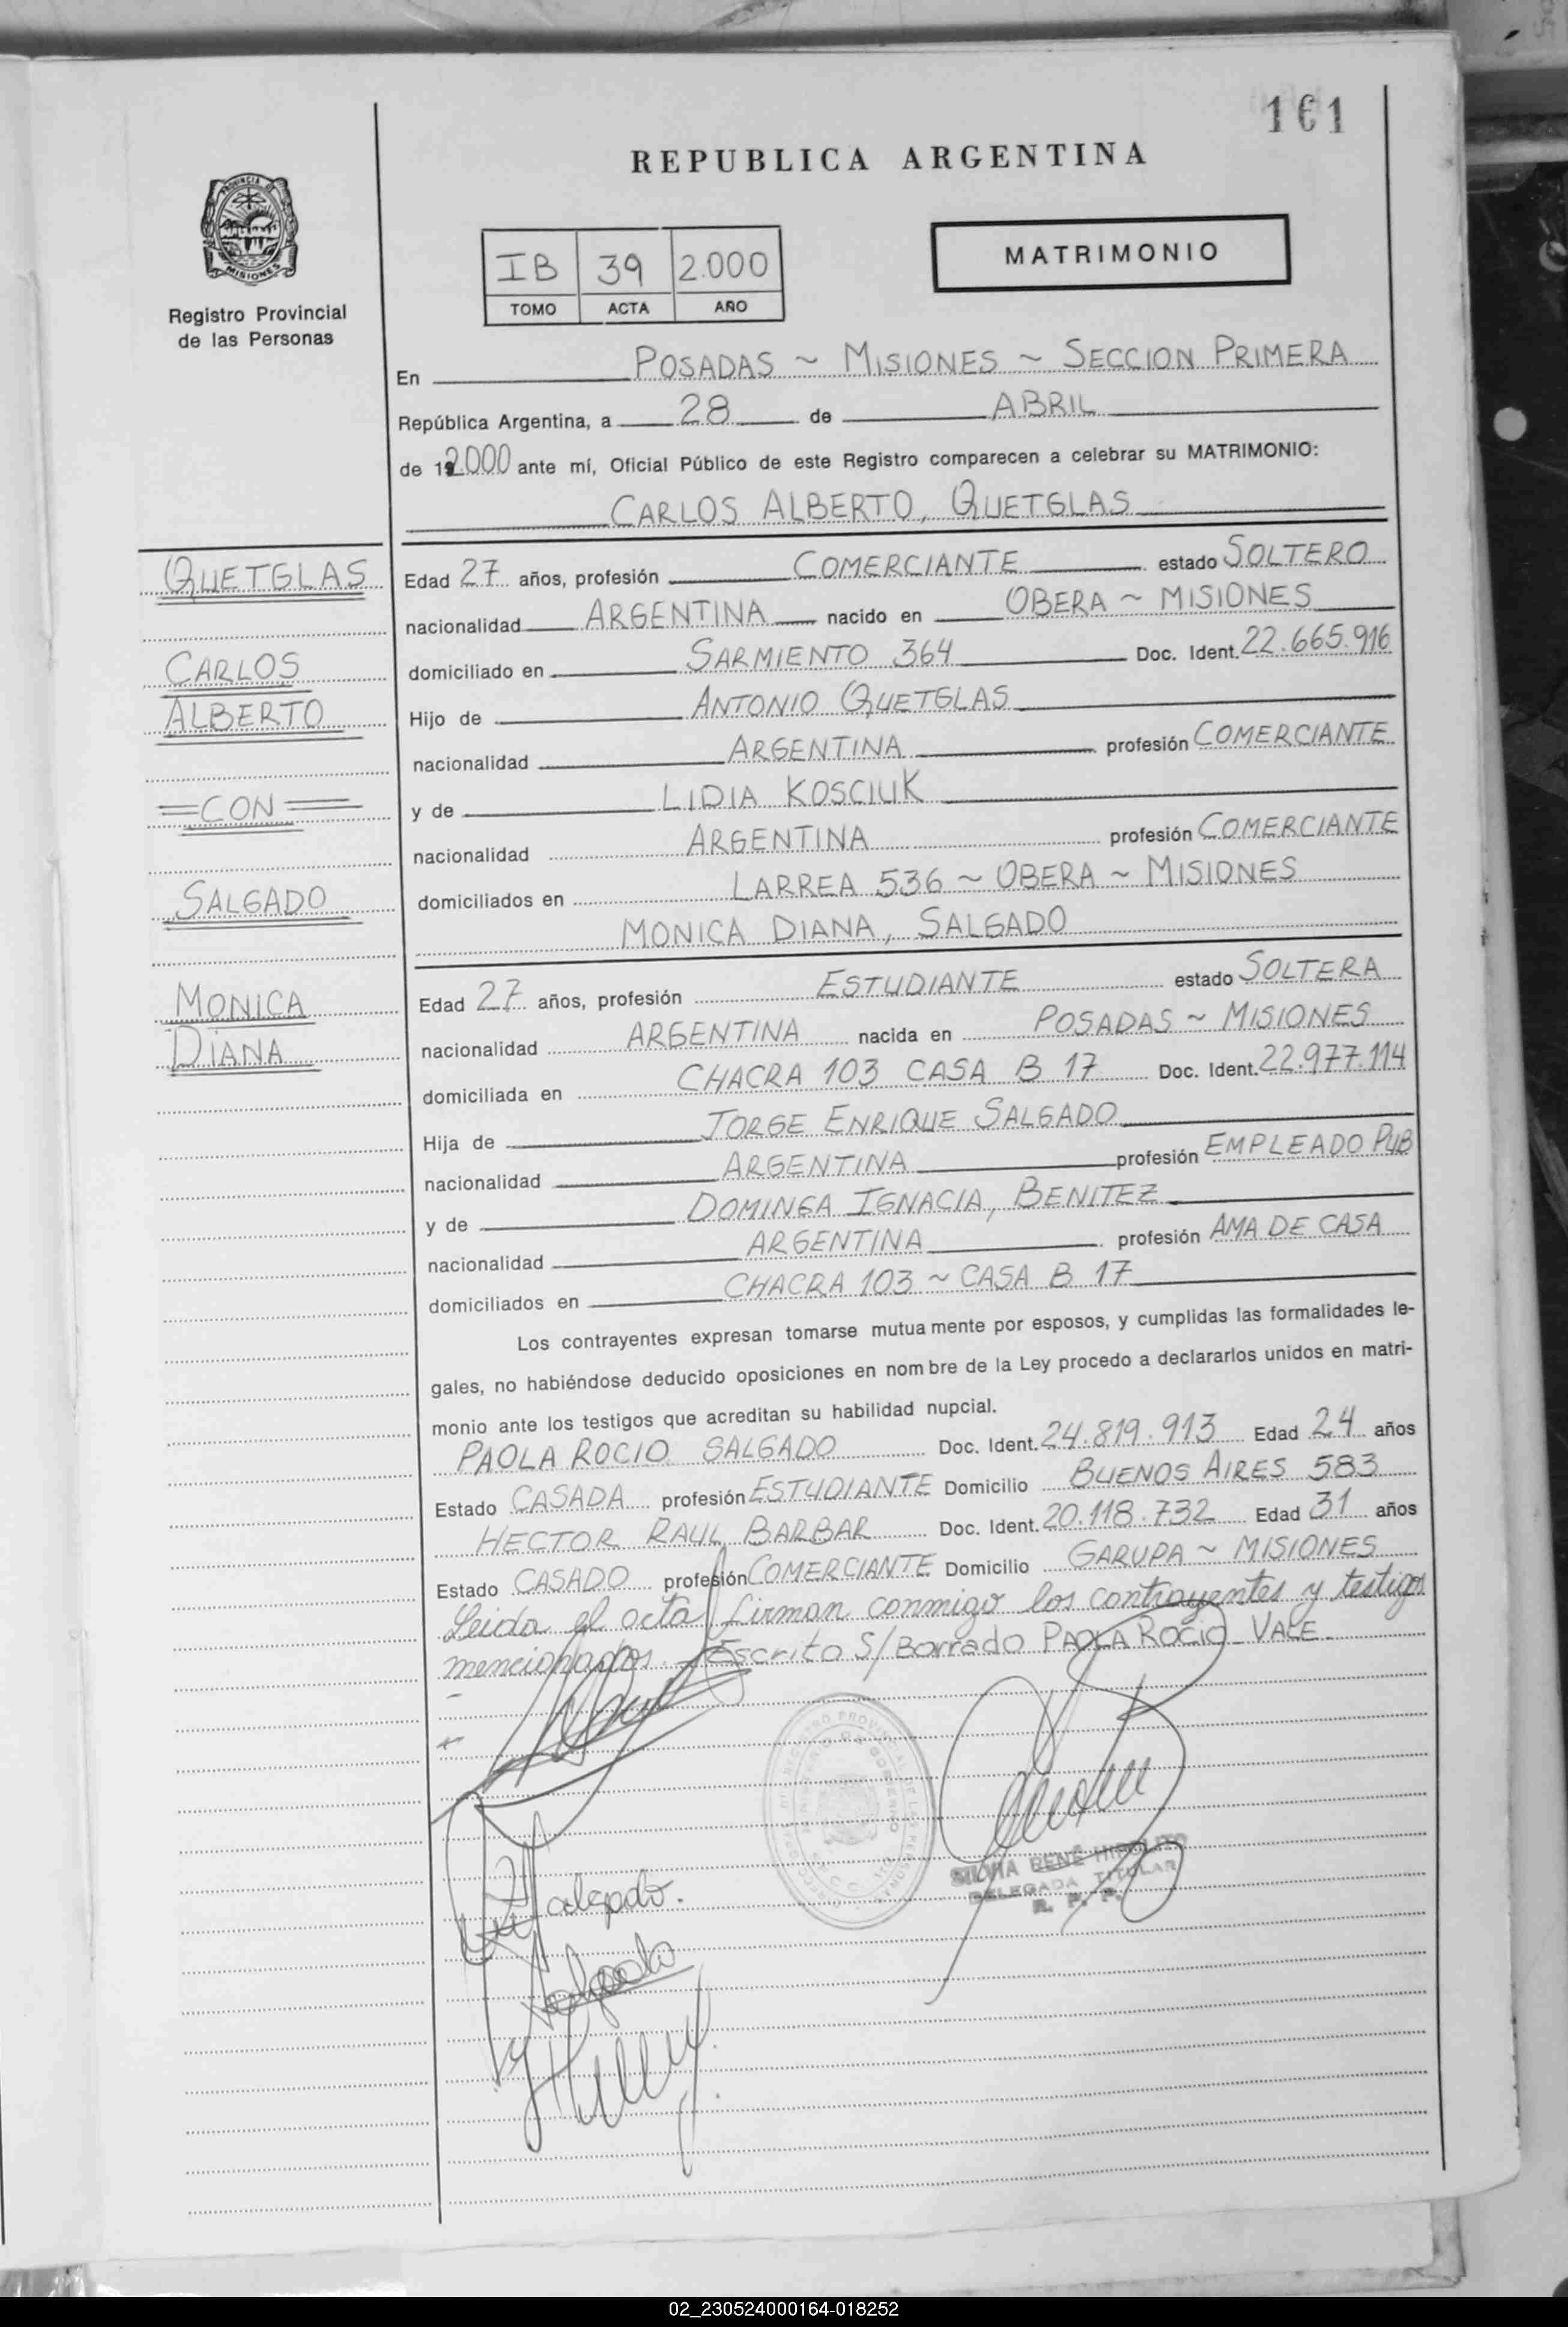 161
REPUBLICA ARGENTINA
PROVINCIA DE
MISIONES
Registro Provincial
de las Personas
IB 39 2.000
TOMO ACTA AÑO
MATRIMONIO
En POSADAS ~ MISIONES ~ SECCION PRIMERA
República Argentina, a 28 de ABRIL
de 2000 ante mí, Oficial Público de este Registro comparecen a celebrar su MATRIMONIO:
CARLOS ALBERTO, QUETGLAS
QUETGLAS
CARLOS
ALBERTO
=CON=
SALGADO
MONICA
DIANA
Edad 27 años, profesión COMERCIANTE estado SOLTERO
nacionalidad ARGENTINA nacido en OBERA ~ MISIONES
domiciliado en SARMIENTO 364 Doc. Ident. 22.665.916
Hijo de ANTONIO QUETGLAS
nacionalidad ARGENTINA profesión COMERCIANTE
y de LIDIA KOSCIUK
nacionalidad ARGENTINA profesión COMERCIANTE
domiciliados en LARREA 536 ~ OBERA ~ MISIONES
MONICA DIANA, SALGADO
Edad 27 años, profesión ESTUDIANTE estado SOLTERA
nacionalidad ARGENTINA nacida en POSADAS ~ MISIONES
domiciliada en CHACRA 103 CASA B 17 Doc. Ident. 22.977.114
Hija de JORGE ENRIQUE SALGADO
nacionalidad ARGENTINA profesión EMPLEADO PUB
y de DOMINGA IGNACIA, BENITEZ
nacionalidad ARGENTINA profesión AMA DE CASA
domiciliados en CHACRA 103 ~ CASA B 17
Los contrayentes expresan tomarse mutuamente por esposos, y cumplidas las formalidades le-
gales, no habiéndose deducido oposiciones en nombre de la Ley procedo a declararlos unidos en matri-
monio ante los testigos que acreditan su habilidad nupcial.
PAOLA ROCIO SALGADO Doc. Ident. 24.819.913 Edad 24 años
Estado CASADA profesión ESTUDIANTE Domicilio BUENOS AIRES 583
HECTOR RAUL BARBAR Doc. Ident. 20.118.732 Edad 31 años
Estado CASADO profesión COMERCIANTE Domicilio GARUPA ~ MISIONES
Leida el acta firman conmigo los contrayentes y testigos
mencionados. - Escrito S/Borrado PAOLA ROCIO VALE
Salgado.
Salgado
SILVIA RENÉ HIPOLITO
DELEGADA TITULAR
R. P. P.
02_230524000164-018252